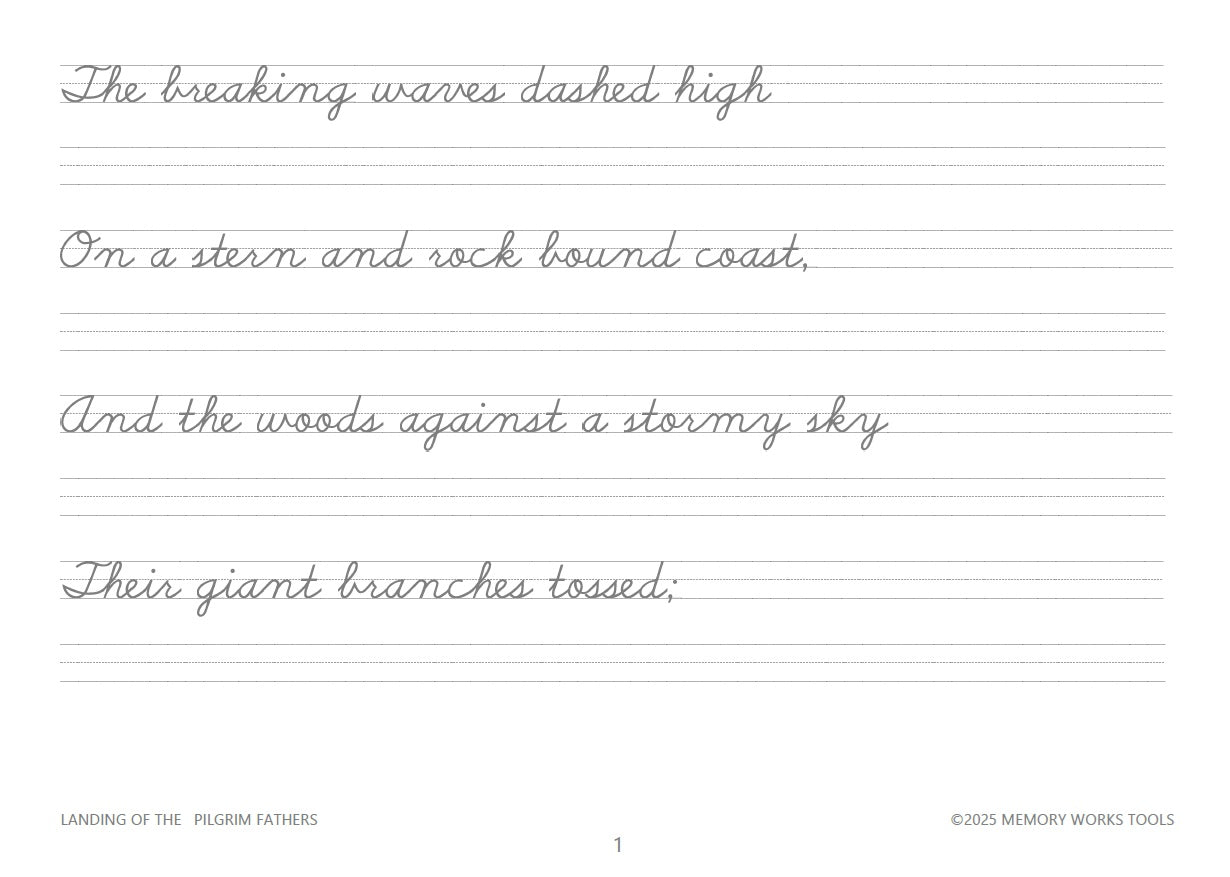 The breaking waves dashed high
On a stern and rock bound coast,
And the woods against a stormy sky
Their giant branches tossed;
LANDING OF THE PILGRIM FATHERS
©2025 MEMORY WORKS TOOLS
1